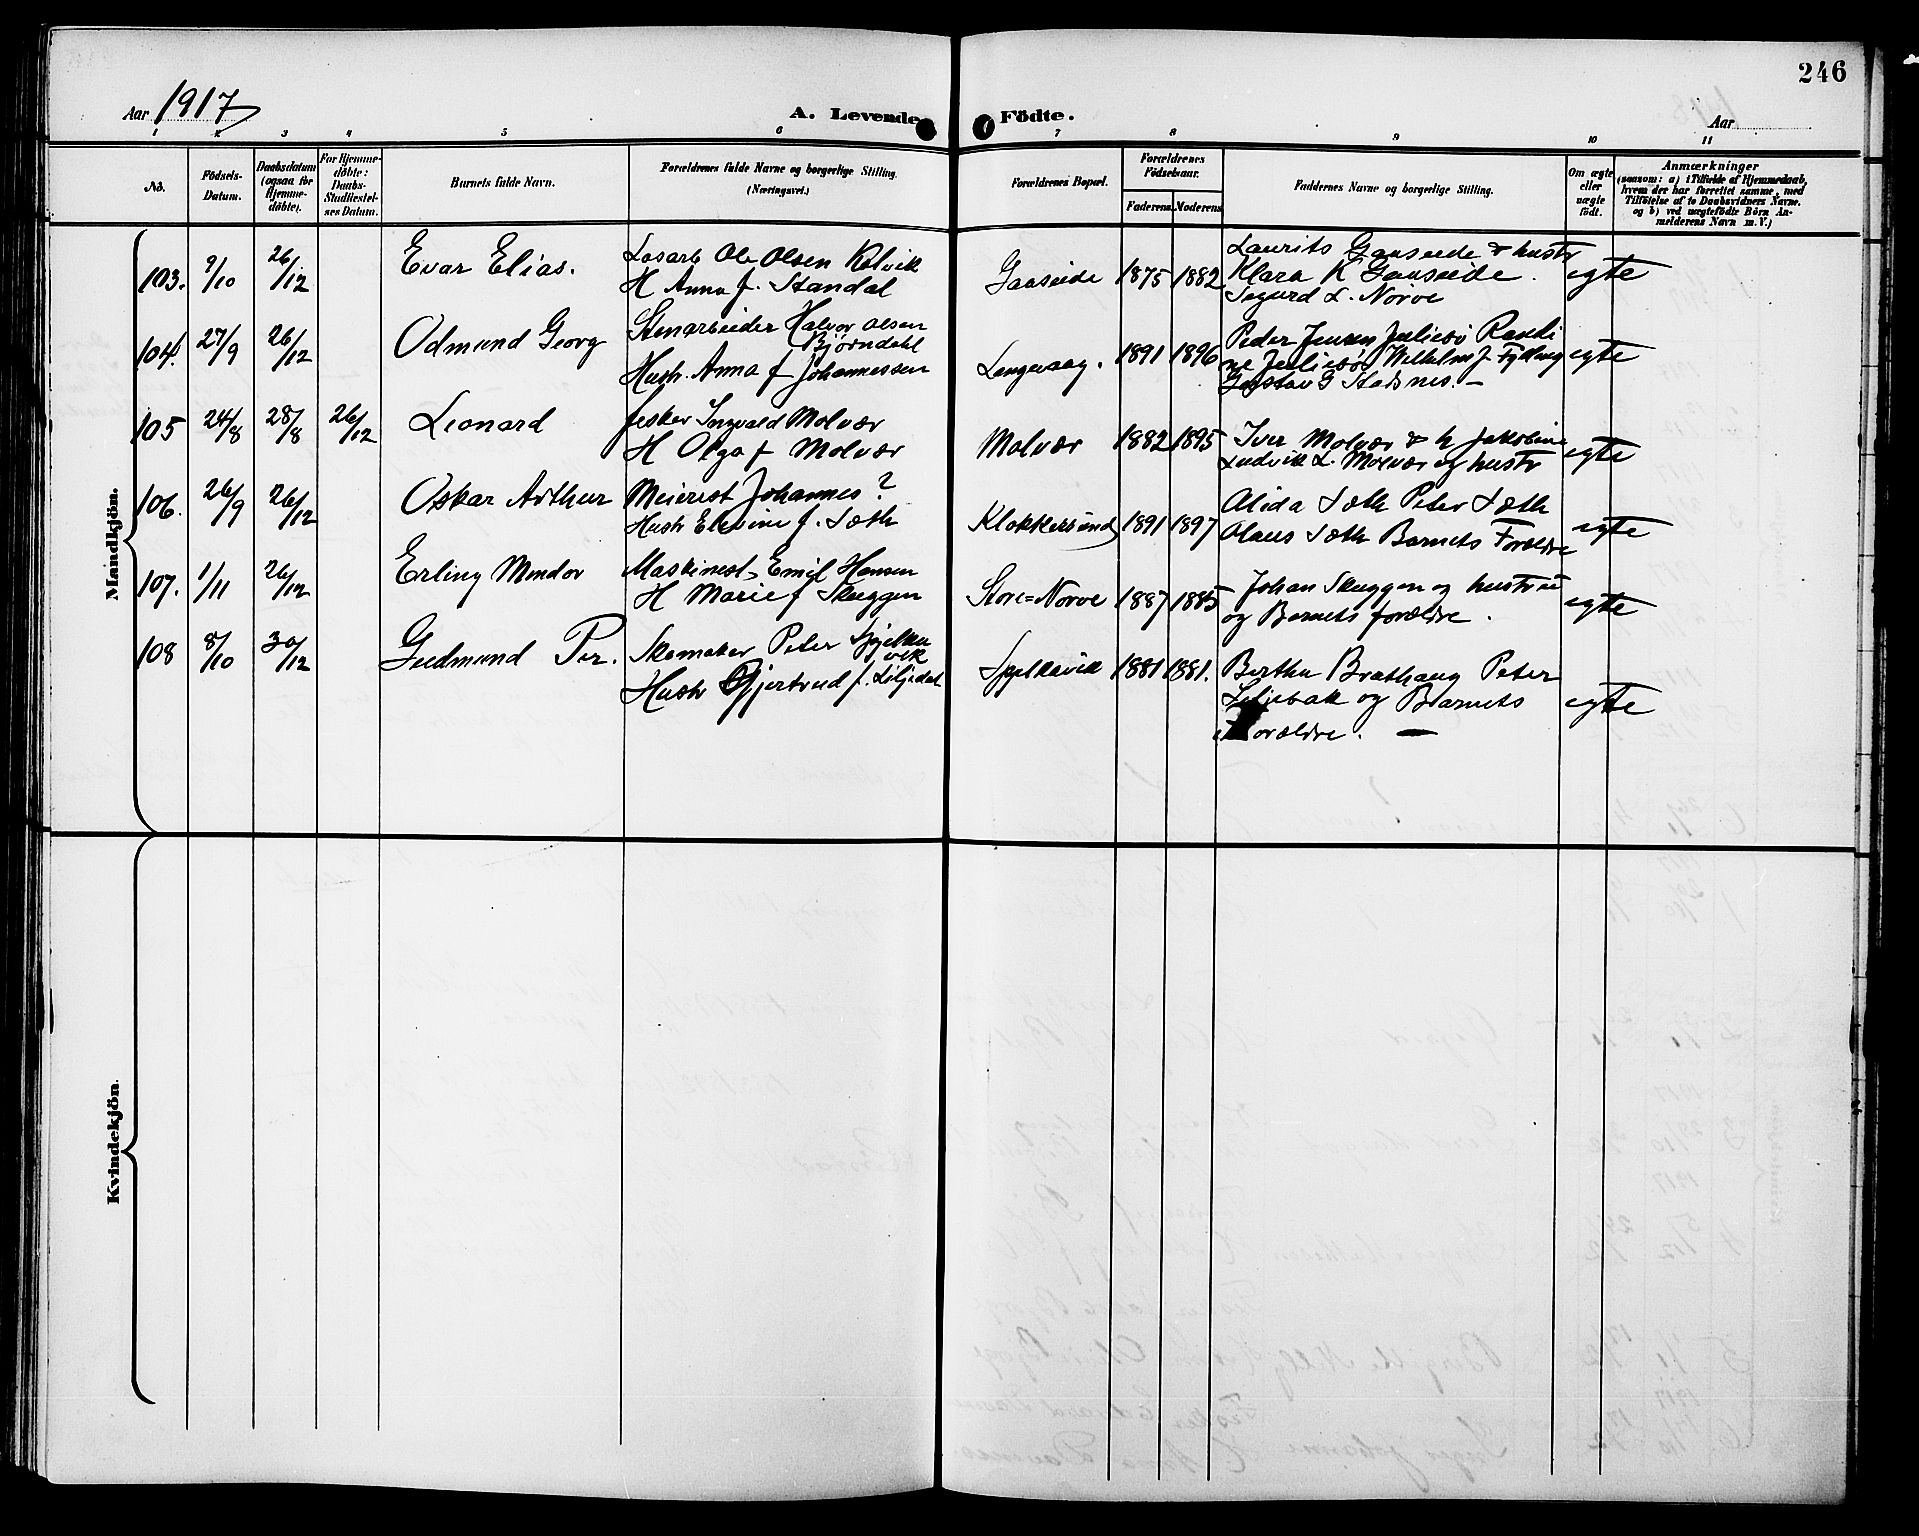 246
Aar 1917
A. Levende Födte.
Aar
1 2 3 4 5 6 7 8 9 10 11
No.
Födsels-Datum.
Daabsdatum (ogsaa for Hjemme-döbte).
For Hjemme-döbte: Daabs-Stadfæstel-ses Datum.
Barnets fulde Navn.
Forældrenes fulde Navne og borgerlige Stilling. (Næringsvei.)
Forældrenes Bopæl.
Forældrenes Födselsaar.
Faderens. Moderens.
Faddernes Navne og borgerlige Stilling.
Om ægte eller uægte födt.
Anmærkninger
(saasom: a) i Tilfælde af Hjemmedaab, hvem der har forrettet samme, med Tilföielse af to Daabsvidners Navne. og b) ved uægtefödte Börn An-melderens Navn m. V.)
Mandkjön.
103. 9/10 26/12 Evar Elias.
Losarb Ole Olsen Kolvik
H Anna f. Standal
Gaaseide 1875 1882
Laurits Gaaseide & hustr
Klara K Gaaseide.
Sigurd L. Nörve
egte
104. 27/9 26/12 Odmund Georg
Stenarbeider Halvor Olsen
Bjørndahl
Hustr. Anna f Johannessen
Langevaag. 1891 1896
Peder Jensen Juliebö
ne Juliebö Wilhelm J. Fylling
Gustav G Stadsnes. —
egte
105 24/8 28/8 26/12 Leonard
fisker Ingvald Molvær
H Olga f Molvær
Molvær 1882 1895
Iver Molvær & h Jakobine
Ludvik L. Molvær og hustr
egte
106. 26/9 26/12 Oskar Arthur
Meierist Johannes ?
Hustr Elevine f. Sæth
Klokkersund 1891 1897
Alida Sæth Peter Sæth
Olaus Sæth Barnets Forældre
egte
107. 1/11 26/12 Erling Mindor
Maskinest Emil Hansen
H Marie f Skuggen
Store=Nørve 1887 1885
Johan Skuggen og hustru
og Barnets forældre.
egte
108 8/10 30/12 Gudmund Per.
Skomaker Peter Spjelka
vik
Hustr Gjertrud f. Liljedal
Spjelkavik 1881 1881.
Berthe Brathaug Peter
Liljebak og Barnets
Forældre. —
egte
Kvindekjön.